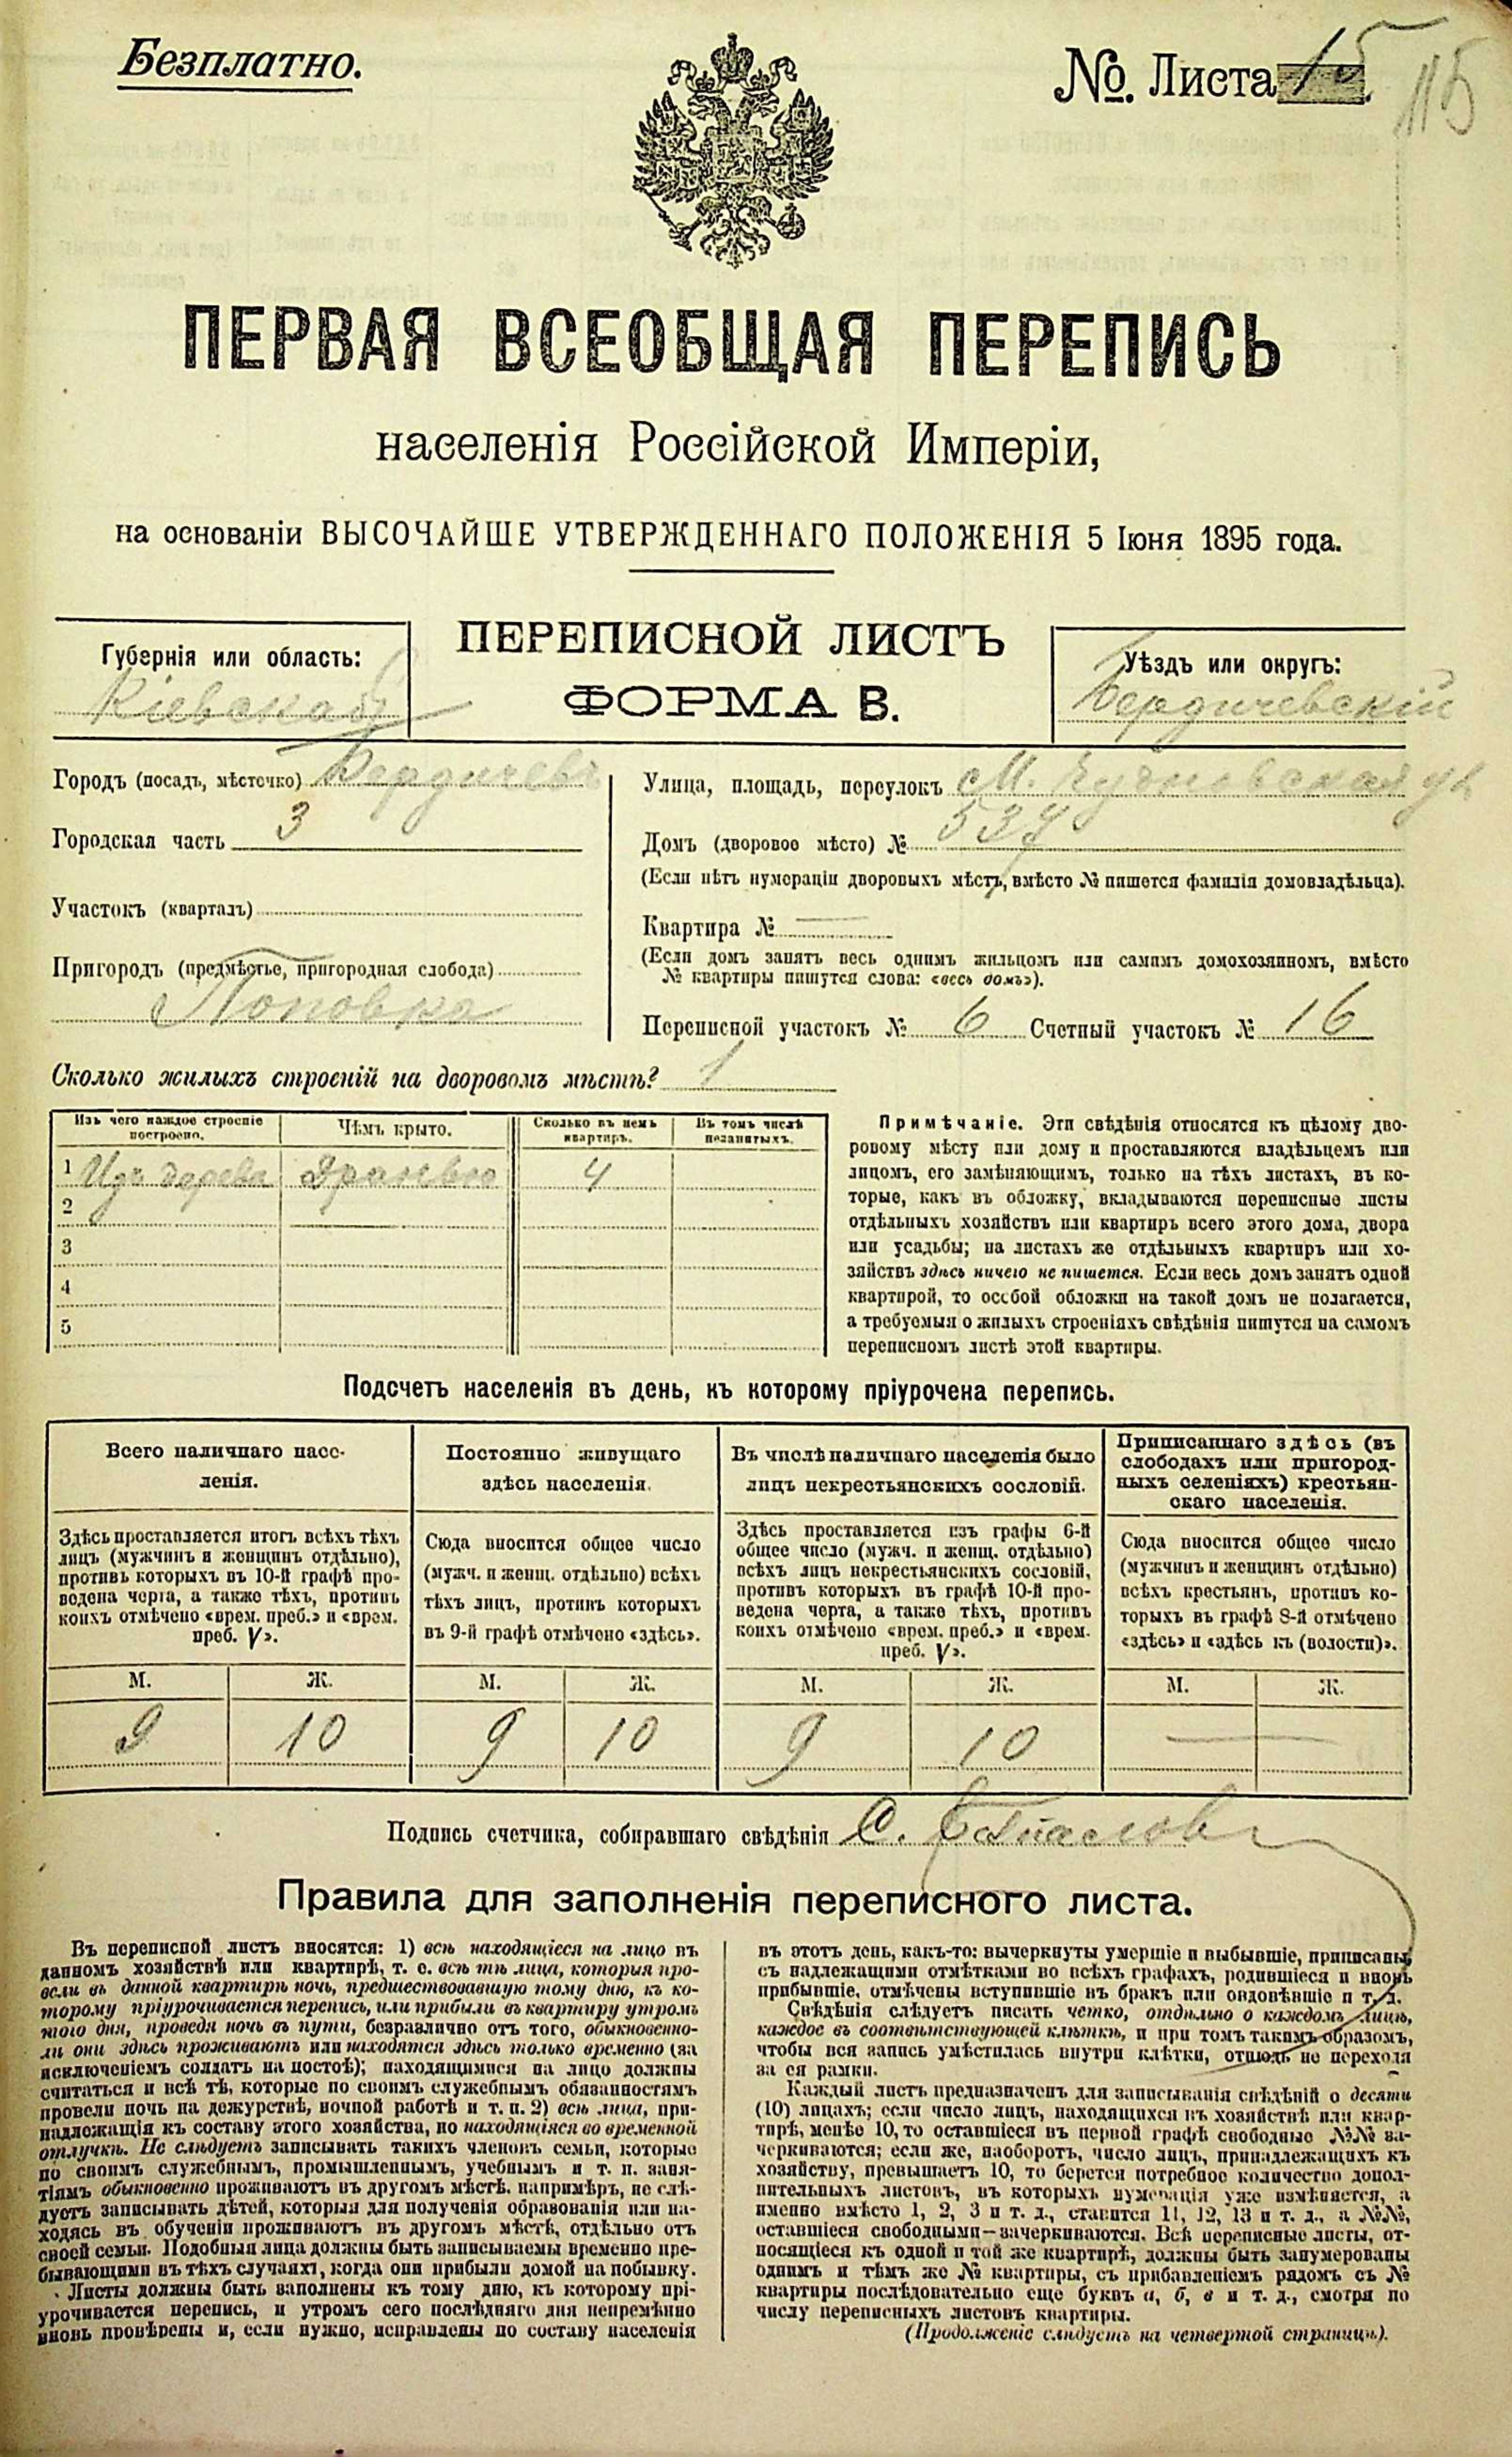 Безплатно.
№. Листа 15.
115
ПЕРВАЯ ВСЕОБЩАЯ ПЕРЕПИСЬ
населенія Россійской Имперіи,
на основаніи ВЫСОЧАЙШЕ УТВЕРЖДЕННАГО ПОЛОЖЕНІЯ 5 Іюня 1895 года.
Губернія или область:
Кіевская
ПЕРЕПИСНОЙ ЛИСТЪ
ФОРМА В.
Уѣздъ или округъ:
Бердичевскій
Городъ (посадъ, мѣстечко) Бердичевъ
Городская часть 3
Участокъ (кварталъ)
Пригородъ (предмѣстье, пригородная слобода)
Поповка
Улица, площадь, переулокъ М. Чудновская ул
Домъ (дворовое мѣсто) № 537
(Если нѣтъ нумераціи дворовыхъ мѣстъ, вмѣсто № пишется фамилія домовладѣльца).
Квартира №
(Если домъ занятъ весь однимъ жильцомъ или самимъ домохозяиномъ, вмѣсто
№ квартиры пишутся слова: «весь домъ»).
Переписной участокъ № 6 Счетный участокъ № 16
Сколько жилыхъ строеній на дворовомъ мѣстѣ? 1
Изъ чего каждое строеніе построено.
Чѣмъ крыто.
Сколько въ немъ квартиръ.
Въ томъ числѣ незанятыхъ.
1 Изъ дерева Дранью 4
2
3
4
5
Примѣчаніе. Эти свѣдѣнія относятся къ цѣлому дво-
ровому мѣсту или дому и проставляются владѣльцемъ или
лицомъ, его замѣняющимъ, только на тѣхъ листахъ, въ ко-
торые, какъ въ обложку, вкладываются переписные листы
отдѣльныхъ хозяйствъ или квартиръ всего этого дома, двора
или усадьбы; на листахъ же отдѣльныхъ квартиръ или хо-
зяйствъ здѣсь ничего не пишется. Если весь домъ занятъ одной
квартирой, то особой обложки на такой домъ не полагается,
а требуемыя о жилыхъ строеніяхъ свѣдѣнія пишутся на самомъ
переписномъ листѣ этой квартиры.
Подсчетъ населенія въ день, къ которому пріурочена перепись.
Всего наличнаго насе-
ленія.
Здѣсь проставляется итогъ всѣхъ тѣхъ
лицъ (мужчинъ и женщинъ отдѣльно),
противъ которыхъ въ 10-й графѣ про-
ведена черта, а также тѣхъ, противъ
коихъ отмѣчено «врем. преб.» и «врем.
преб. V».
М. Ж.
9 10
Постоянно живущаго
здѣсь населенія.
Сюда вносится общее число
(мужч. и женщ. отдѣльно) всѣхъ
тѣхъ лицъ, противъ которыхъ
въ 9-й графѣ отмѣчено «здѣсь».
М. Ж.
9 10
Въ числѣ наличнаго населенія было
лицъ некрестьянскихъ сословій.
Здѣсь проставляется изъ графы 6-й
общее число (мужч. и женщ. отдѣльно)
всѣхъ лицъ некрестьянскихъ сословій,
противъ которыхъ въ графѣ 10-й про-
ведена черта, а также тѣхъ, противъ
коихъ отмѣчено «врем. преб.» и «врем.
преб. V».
М. Ж.
9 10
Приписаннаго здѣсь (въ
слободахъ или пригород-
ныхъ селеніяхъ) крестьян-
скаго населенія.
Сюда вносится общее число
(мужчинъ и женщинъ отдѣльно)
всѣхъ крестьянъ, противъ ко-
торыхъ въ графѣ 8-й отмѣчено
«здѣсь» и «здѣсь къ (волости)».
М. Ж.
Подпись счетчика, собиравшаго свѣдѣнія С.
Правила для заполненія переписного листа.
Въ переписной листъ вносятся: 1) всѣ находящіеся на лицо въ
данномъ хозяйствѣ или квартирѣ, т. е. всѣ тѣ лица, которыя про-
вели въ данной квартирѣ ночь, предшествовавшую тому дню, къ ко-
торому пріурочивается перепись, или прибыли въ квартиру утромъ
того дня, проведя ночь въ пути, безразлично отъ того, обыкновенно-
ли они здѣсь проживаютъ или находятся здѣсь только временно (за
исключеніемъ солдатъ на постоѣ); находящимися на лицо должны
считаться и всѣ тѣ, которые по своимъ служебнымъ обязанностямъ
провели ночь на дежурствѣ, ночной работѣ и т. п. 2) всѣ лица, при-
надлежащія къ составу этого хозяйства, но находящіяся во временной
отлучкѣ. Не слѣдуетъ записывать такихъ членовъ семьи, которые
по своимъ служебнымъ, промышленнымъ, учебнымъ и т. п. заня-
тіямъ обыкновенно проживаютъ въ другомъ мѣстѣ. напримѣръ, не слѣ-
дуетъ записывать дѣтей, которыя для полученія образованія или на-
ходясь въ обученіи проживаютъ въ другомъ мѣстѣ, отдѣльно отъ
своей семьи. Подобныя лица должны быть записываемы временно пре-
бывающими въ тѣхъ случаяхъ, когда они прибыли домой на побывку.
Листы должны быть заполнены къ тому дню, къ которому прі-
урочивается перепись, и утромъ сего послѣдняго дня непремѣнно
вновь провѣрены и, если нужно, исправлены по составу населенія
въ этотъ день, какъ-то: вычеркнуты умершіе и выбывшіе, приписаны,
съ надлежащими отмѣтками во всѣхъ графахъ, родившіеся и вновь
прибывшіе, отмѣчены вступившіе въ бракъ или овдовѣвшіе и т. д.
Свѣдѣнія слѣдуетъ писать четко, отдѣльно о каждомъ лицѣ,
каждое въ соотвѣтствующей клѣткѣ, и при томъ такимъ образомъ,
чтобы вся запись умѣстилась внутри клѣтки, отнюдь не переходя
за ея рамки.
Каждый листъ предназначенъ для записыванія свѣдѣній о десяти
(10) лицахъ; если число лицъ, находящихся въ хозяйствѣ или квар-
тирѣ, менѣе 10, то оставшіеся въ первой графѣ свободные №№ за-
черкиваются; если же, наоборотъ, число лицъ, принадлежащихъ къ
хозяйству, превышаетъ 10, то берется потребное количество допол-
нительныхъ листовъ, въ которыхъ нумерація уже измѣняется, а
именно вмѣсто 1, 2, 3 и т. д., ставится 11, 12, 13 и т. д., а №№,
оставшіеся свободными—зачеркиваются. Всѣ переписные листы, от-
носящіеся къ одной и той же квартирѣ, должны быть занумерованы
однимъ и тѣмъ же № квартиры, съ прибавленіемъ рядомъ съ №
квартиры послѣдовательно еще буквъ а, б, в и т. д., смотря по
числу переписныхъ листовъ квартиры.
(Продолженіе слѣдуетъ на четвертой страницѣ).